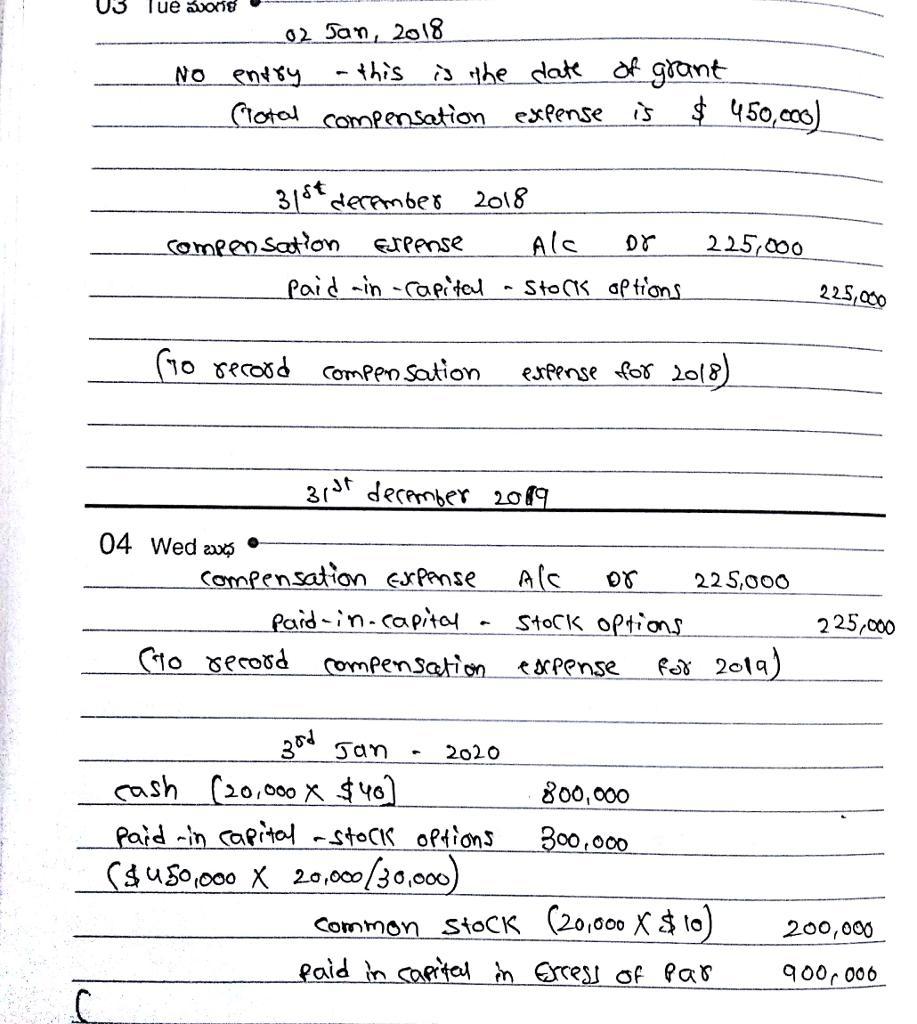 03 Tue మంగళ
02 Jan, 2018
No entry - this is the date of grant
(Total compensation expense is $ 450,000)
31st december 2018
compensation Expense A/c Dr 225,000
Paid-in-capital - stock options 225,000
(To record compensation expense for 2018)
31st december 2019
04 Wed బుధ
compensation expense A/c Dr 225,000
Paid-in-capital - stock options 225,000
(To record compensation expense for 2019)
3rd Jan - 2020
cash (20,000 X $40] 800,000
Paid-in capital - stock options 300,000
($450,000 X 20,000/30,000)
common stock (20,000 X $10) 200,000
Paid in capital in Excess of Par 900,000
(